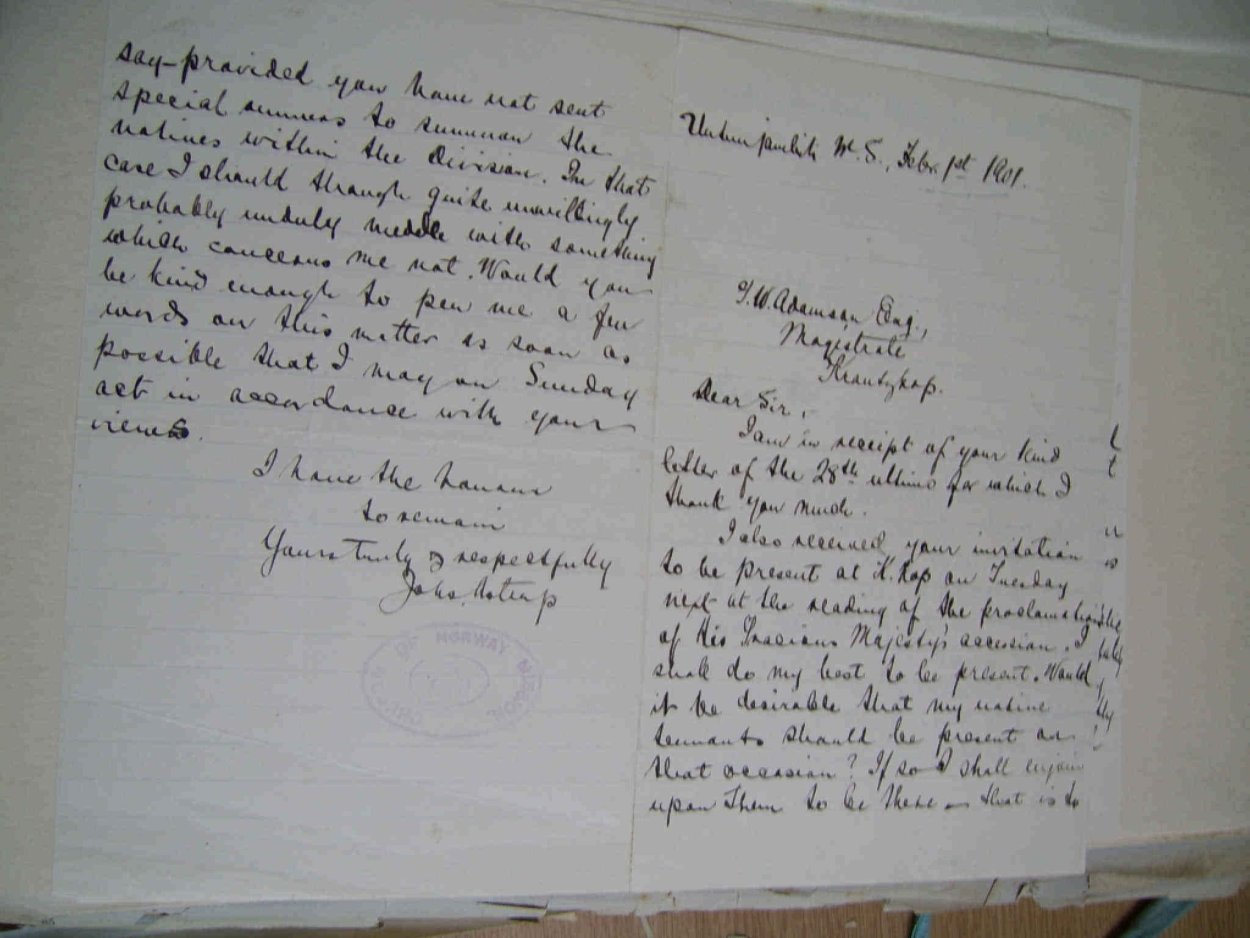 Untunjambili M.S., Febr. 1st 1901.
Adamson Esq.,
Magistrate
Krantzkop.
Dear Sir,
I am in receipt of your kind
letter of the 28th ultimo for which I
thank you much.
I also received your invitation
to be present at K. Kop on Tuesday
next at the reading of the proclamation
of His Gracious Majesty's accession. I
shall do my best to be present. Would
it be desirable that my native
tennants should be present on
that occasion? If so I shall enjoin
upon them to be there – that is to
say – provided you have not sent
special runners to summon the
natives within the Division. In that
case I should though quite unwillingly
probably unduly meddle with something
which concerns me not. Would you
be kind enough to pen me a few
words on this matter as soon as
possible that I may on Sunday
act in accordance with your
views.
I have the honour
to remain
Yours truly & respectfully
CHURCH OF NORWAY MISSION